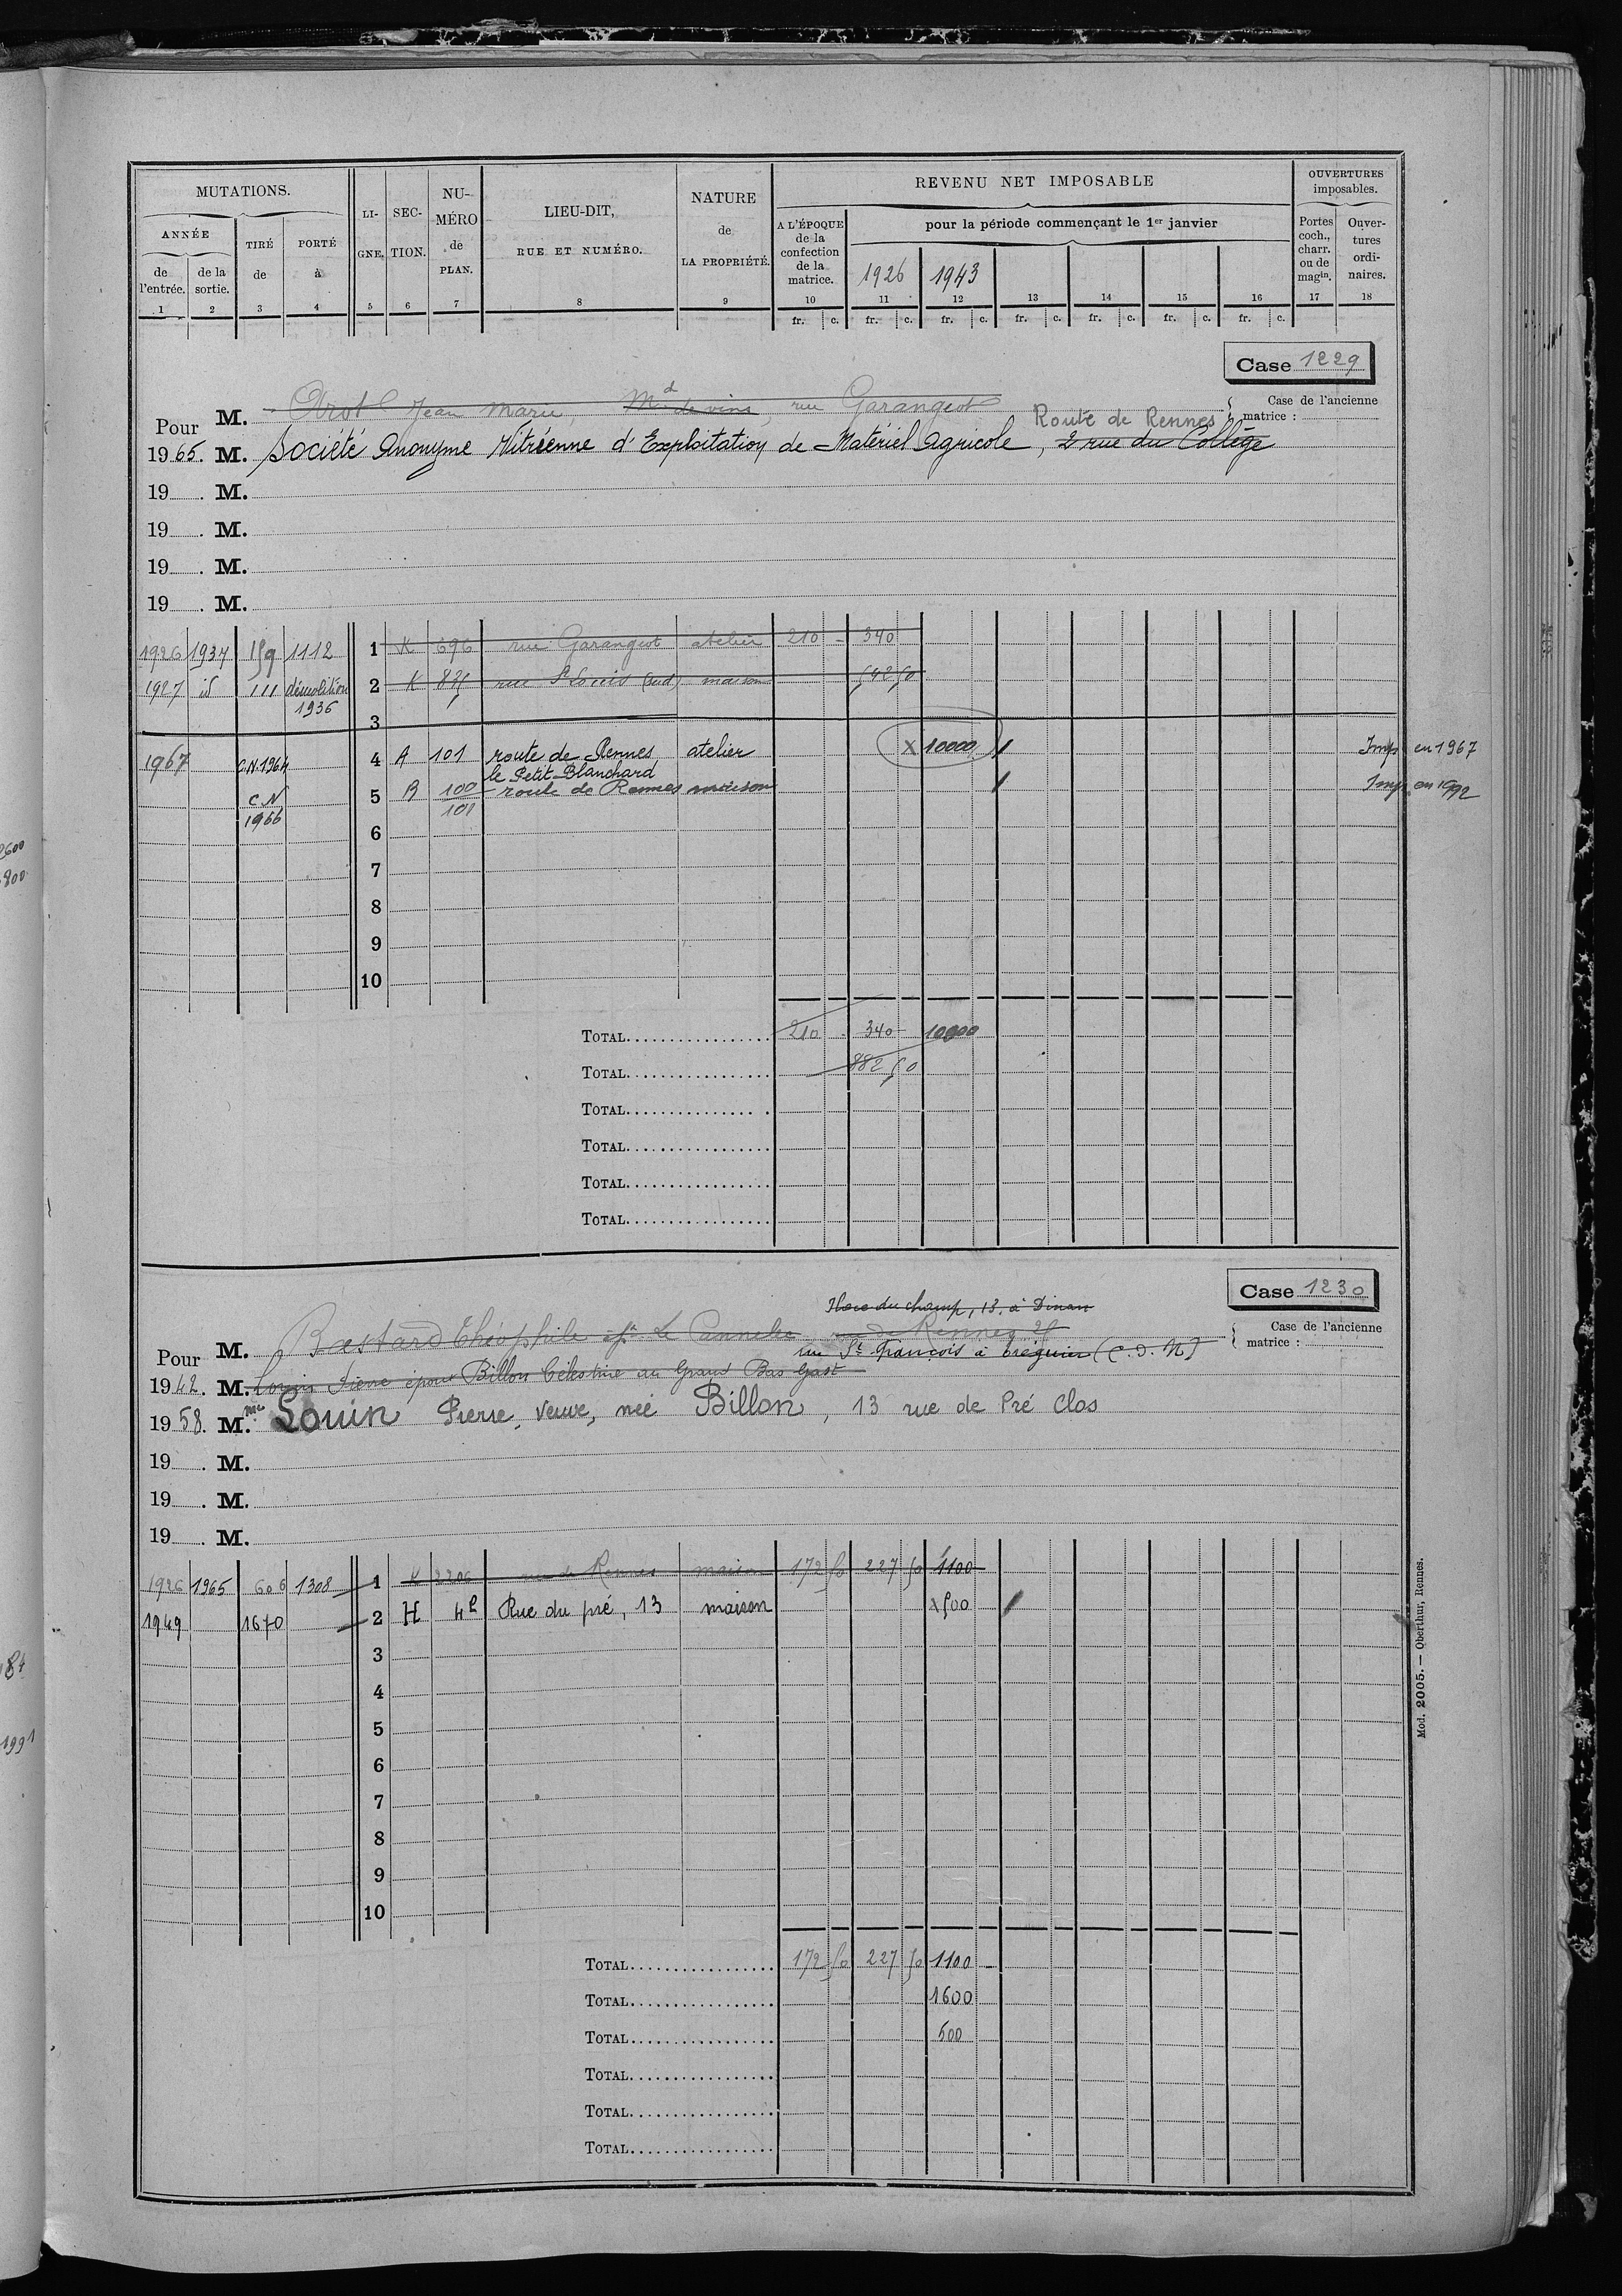 MUTATIONS.
ANNÉE
de l'entrée. 1
de la sortie. 2
TIRÉ de 3
PORTÉ à 4
LI-GNE. 5
SEC-TION. 6
NU-MÉRO de PLAN. 7
LIEU-DIT, RUE ET NUMÉRO. 8
NATURE de LA PROPRIÉTÉ. 9
REVENU NET IMPOSABLE
A L'ÉPOQUE de la confection de la matrice. 10
pour la période commençant le 1er janvier
1926 11
1943 12
13 14 15 16
OUVERTURES imposables.
Portes coch., charr. ou de magin. 17
Ouver-tures ordi-naires. 18
fr. c. fr. c. fr. c. fr. c. fr. c. fr. c. fr. c.
Case 1229
Case de l'ancienne matrice :
Pour M. Jean Marie, Md de vins, rue Garangeot
Route de Rennes
1965. M. Société Anonyme Vitréenne d'Exploitation de Matériel Agricole, 2 rue du Collège
19 . M.
19 . M.
19 . M.
19 . M.
1926 1937 159 1112 1 K 696 rue Garangeot atelier 210 - 340
1927 id 111 démolition 1936 2 K 835 rue St Louis (sud) maison 542 50
3
1967 C.N. 1964 4 A 101 route de Rennes atelier x 10000 Imp. en 1967
le Petit Blanchard
C N 1966 5 B 100 101 route de Rennes maison Imp. en 1992
6
7
8
9
10
TOTAL 210 - 340 - 10000
TOTAL 882 50
TOTAL
TOTAL
TOTAL
TOTAL
Case 1230
Case de l'ancienne matrice :
Place du champ, 18, à Dinan
Pour M. Bastard Théophile Le rue de Rennes 25
rue St François à Tréguier (C. d. N)
1942. M. Louin Pierre époux Billon Célestine au Grand Bas Gast
1958. Mme Louin Pierre, Veuve, née Billon, 13 rue de Pré Clos
19 . M.
19 . M.
19 . M.
1926 1965 606 1308 1 K 2206 rue de Rennes maison 172 50 227 50 1100
1949 1670 2 H 42 Rue du pré, 13 maison x 500
3
4
5
6
7
8
9
10
TOTAL 172 50 227 50 1100 -
TOTAL 1600
TOTAL 500
TOTAL
TOTAL
TOTAL
Mod. 2005. — Oberthur, Rennes.